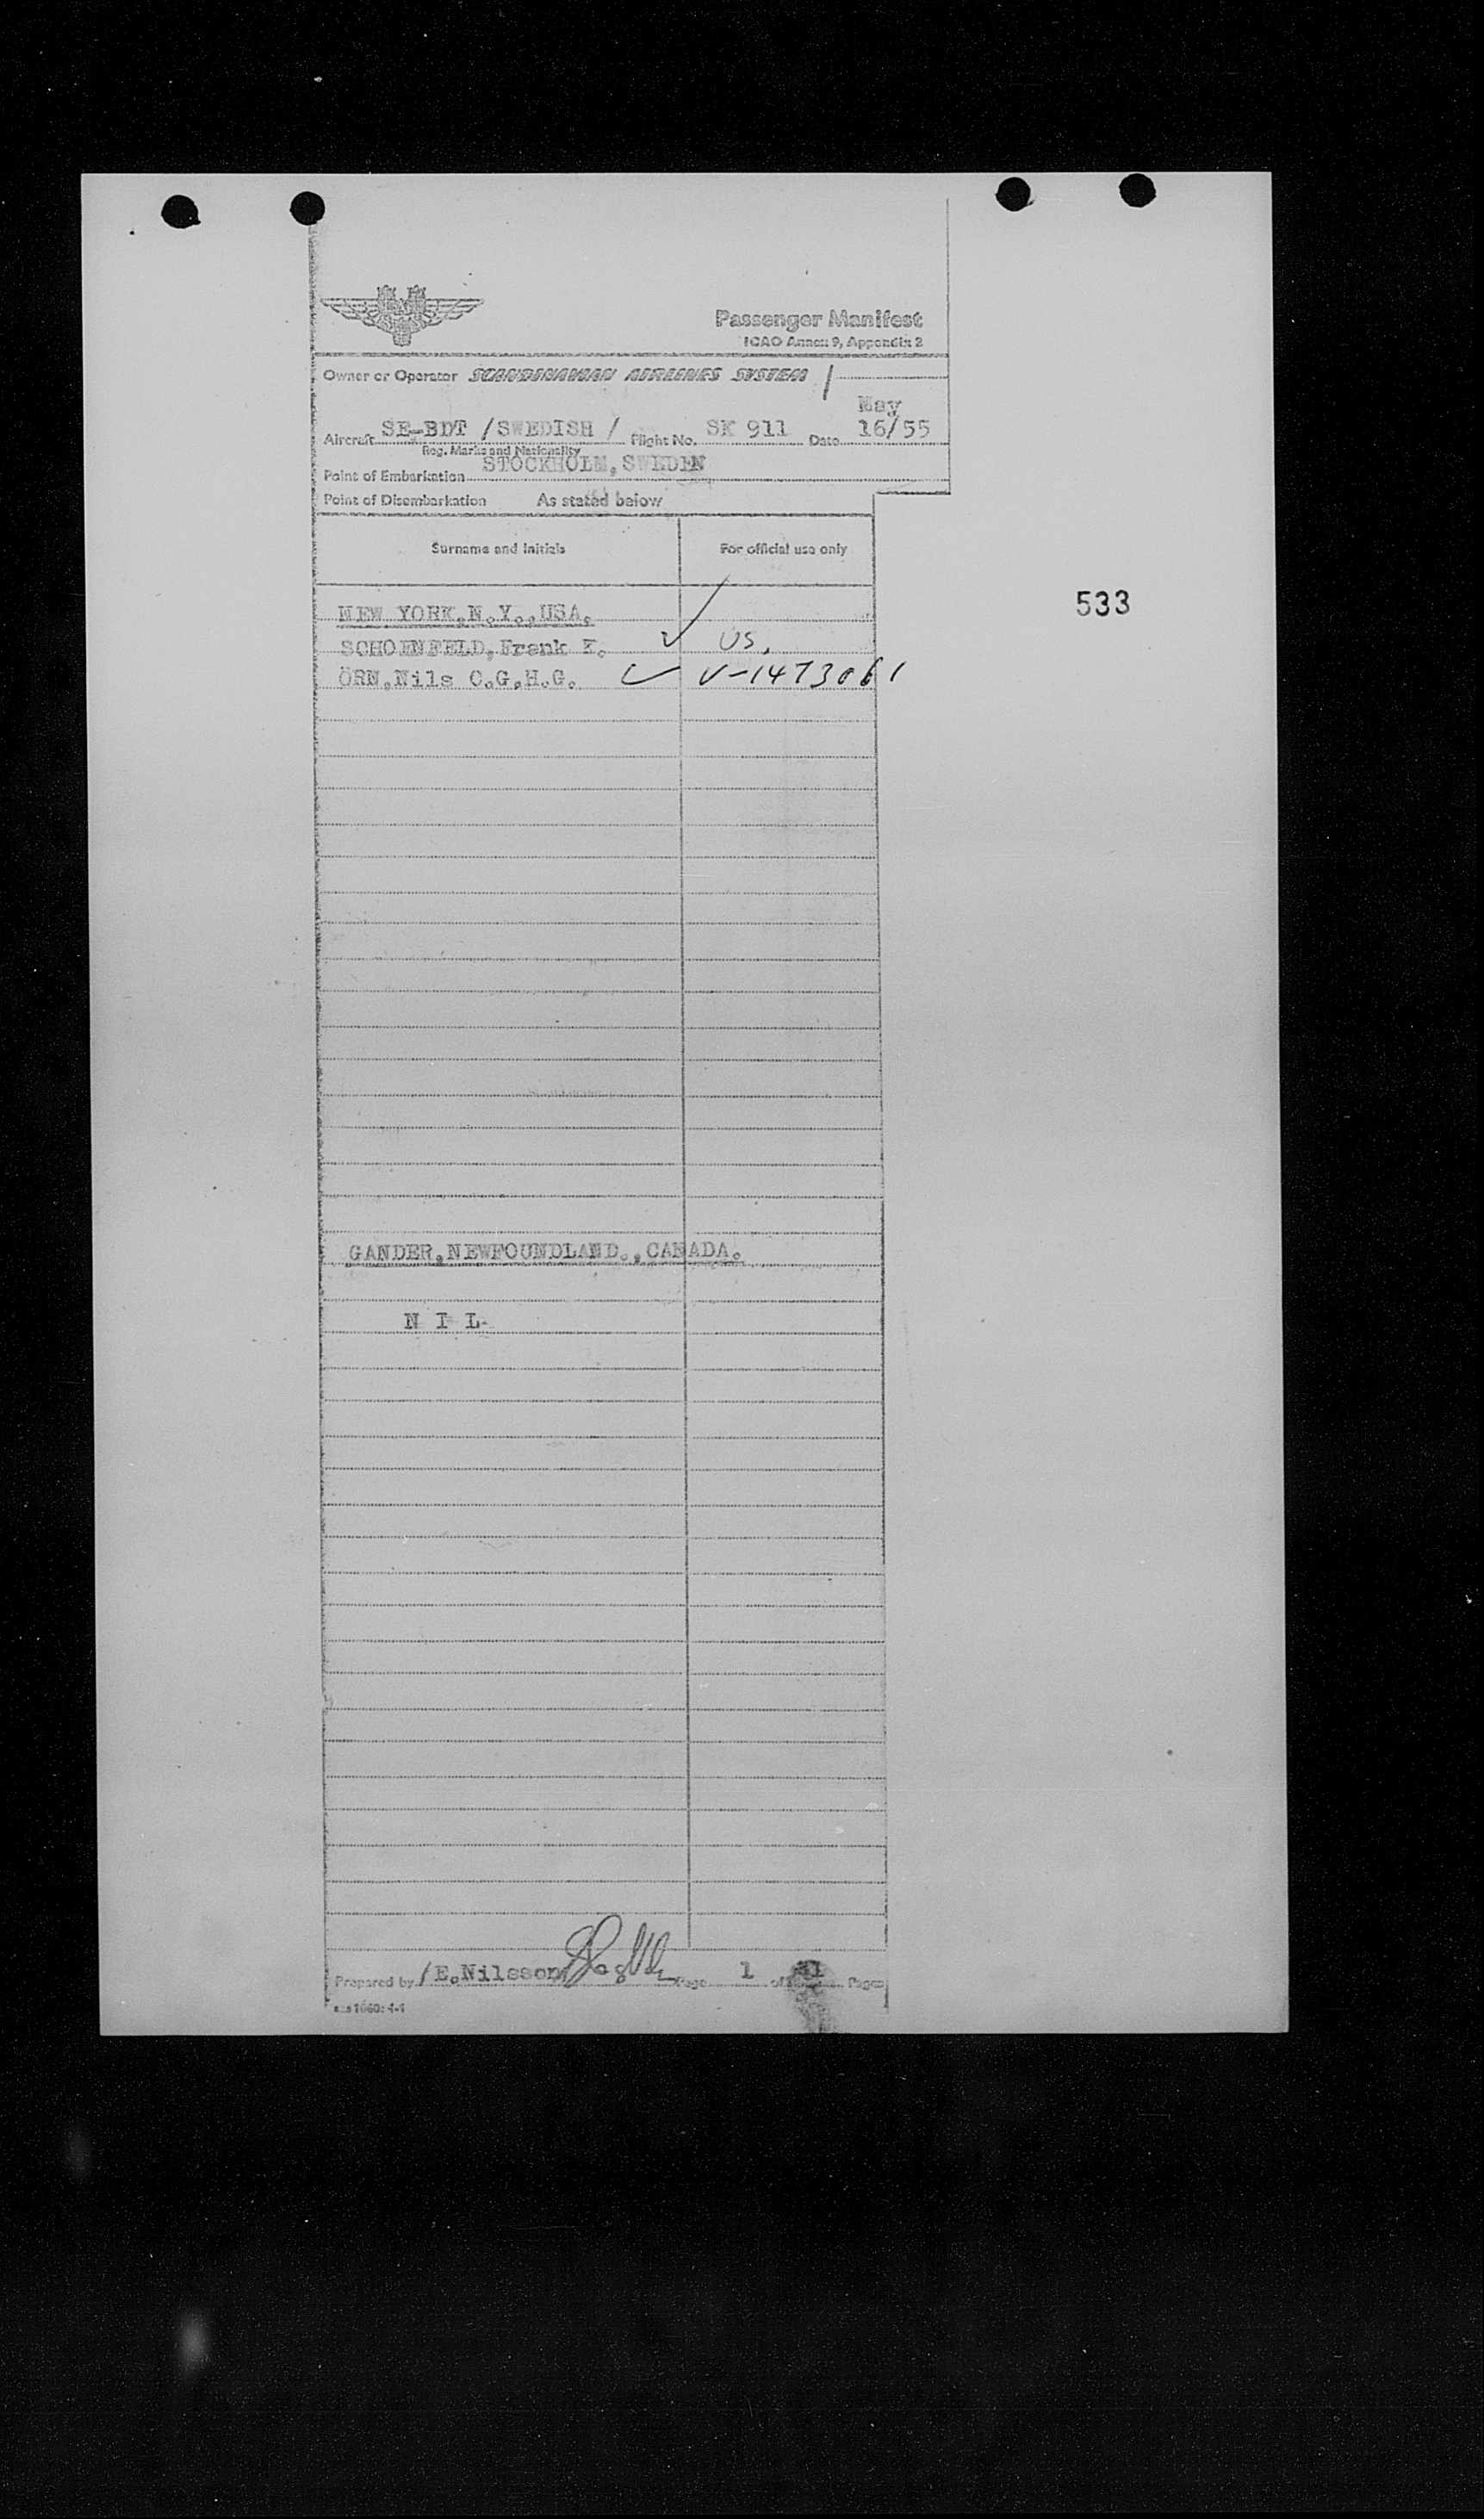 Passenger Manifest
ICAO Annex 9, Appendix 2
Owner or Operator SCANDINAVIAN AIRLINES SYSTEM
May
Aircraft SE-BDT /SWEDISH / Flight No. SK 911 Date 16/55
Reg. Marks and Nationality
Point of Embarkation STOCKHOLM,SWEDEN
Point of Disembarkation As stated below
Surname and initials For official use only
533
NEW YORK,N.Y.,USA.
SCHOENFELD,Frank E. US.
ÖRN,Nils C.G.H.G. V-1473061
GANDER,NEWFOUNDLAND.,CANADA.
N I L
Prepared by /E.Nilsson/ Page 1 of 1 Pages